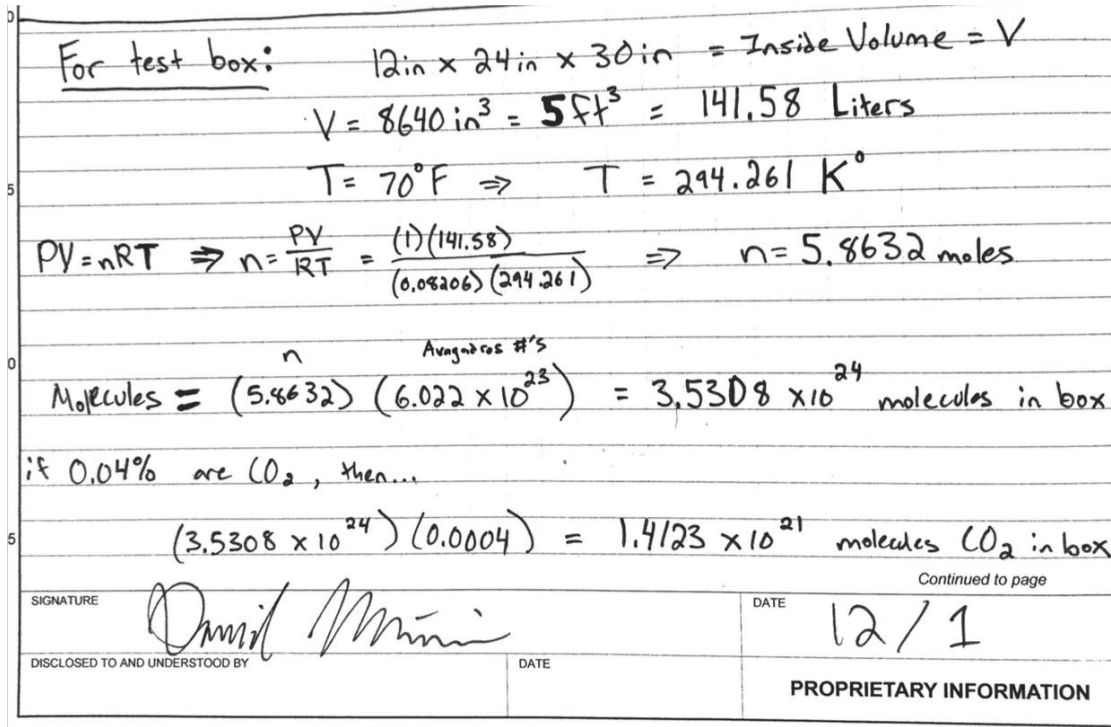 For test box: 12in x 24in x 30in = Inside Volume = V
V = 8640 in³ = 5ft³ = 141.58 Liters
T = 70°F ⇒ T = 294.261 K°
PV=nRT ⇒ n= PV/RT = (1)(141.58)/(0.08206)(294.261) ⇒ n= 5.8632 moles
n Avagadros #'s
Molecules = (5.8632) (6.022 x 10²³) = 3.5308 x10²⁴ molecules in box
if 0.04% are CO₂, then...
(3.5308 x 10²⁴) (0.0004) = 1.4123 x10²¹ molecules CO₂ in box
Continued to page
SIGNATURE DATE 12/1
DISCLOSED TO AND UNDERSTOOD BY DATE
PROPRIETARY INFORMATION